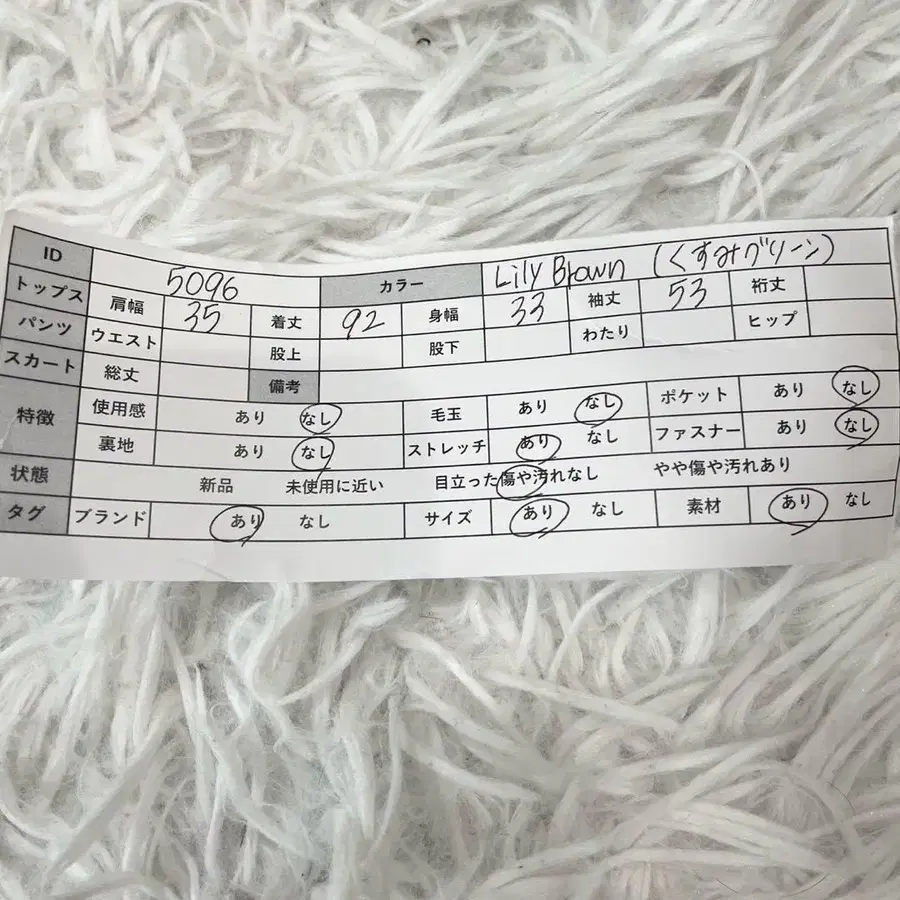 ID 5096 カラー Lily Brown (くすみグリーン)
トップス 肩幅 35 着丈 92 身幅 33 袖丈 53 裄丈
パンツ ウエスト 股上 股下 わたり ヒップ
スカート 総丈 備考
特徴 使用感 あり なし 毛玉 あり なし ポケット あり なし
裏地 あり なし ストレッチ あり なし ファスナー あり なし
状態 新品 未使用に近い 目立った傷や汚れなし やや傷や汚れあり
タグ ブランド あり なし サイズ あり なし 素材 あり なし